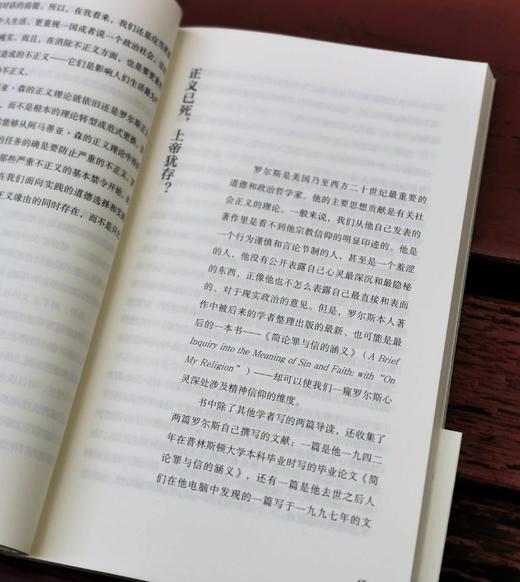 对话的前提。所以，在我看来，我们还是应当
个人生活，更重视一国或者说一个政治社会，
现实。而且，在消除不正义方面，也是要更
造成的不正义——它们是影响人们生活最
不正义。
亚·森的正义理论就依旧还是罗尔斯正
，而不是根本的理论转型或范式更换。
能够从阿马蒂亚·森的正义理论中得
任务的确是要防止严重的不正义，
那些严重不正义的基本禁令开始。
在我们面向实践的道德选择和实
义缘由的同时存在，而不是只
正义已死，上帝犹存？
罗尔斯是美国乃至西方二十世纪最重要的
道德和政治哲学家。他的主要思想贡献是有关社
会正义的理论。一般来说，我们从他自己发表的
著作里是看不到他宗教信仰的明显印迹的。他是
一个行为谨慎和言论节制的人，甚至是一个羞涩
的人，他没有公开表露自己心灵最深沉和最隐秘
的东西，正像他也不怎么表露自己最直接和表面
的、对于现实政治的意见。但是，罗尔斯本人著
作中被后来的学者整理出版的最新、也可能是最
后的一本书——《简论罪与信的涵义》（A Brief
Inquiry into the Meaning of Sin and Faith: with “On
My Religion”）——却可以使我们一窥罗尔斯心
灵深处涉及精神信仰的维度。
书中除了其他学者写的两篇导读，还收集了
两篇罗尔斯自己撰写的文献：一篇是他一九四二
年在普林斯顿大学本科毕业时写的毕业论文《简
论罪与信的涵义》，还有一篇是他去世之后人
们在他电脑中发现的一篇写于一九九七年的文